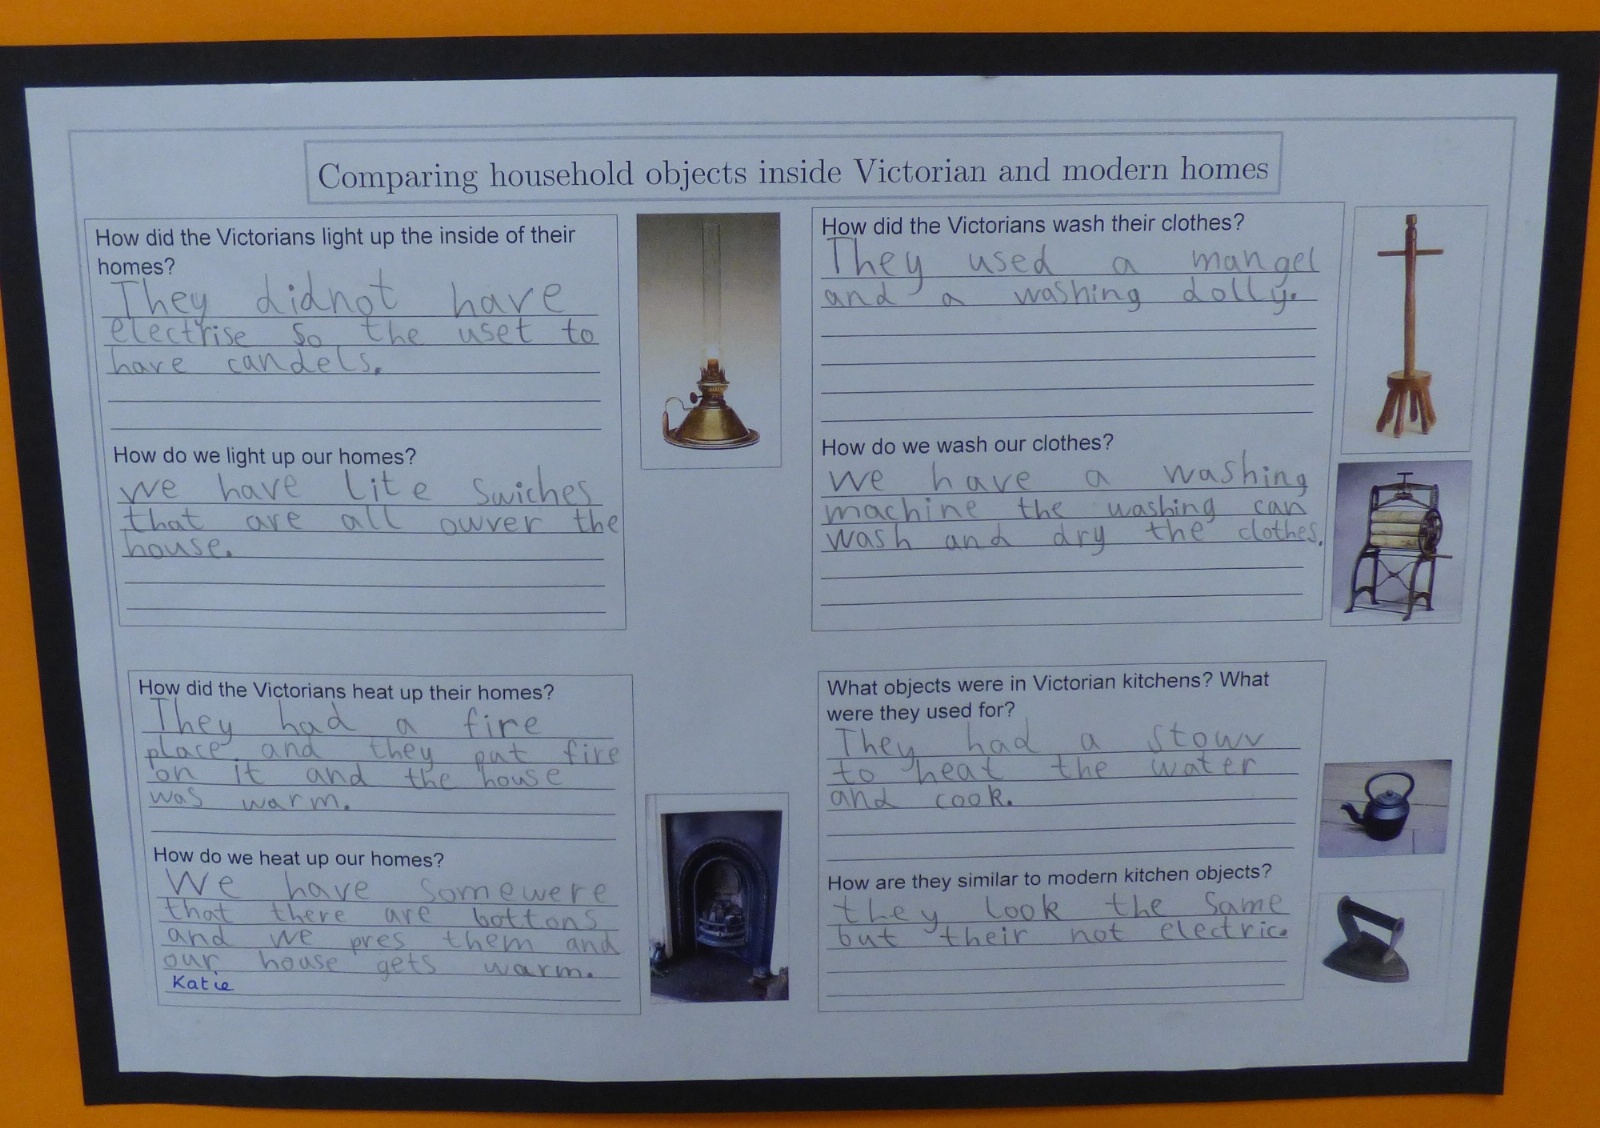 Comparing household objects inside Victorian and modern homes
How did the Victorians light up the inside of their
homes?
They didnot have
electrise so the uset to
have candels.
How do we light up our homes?
we have lite swiches
that are all owver the
house.
How did the Victorians wash their clothes?
They used a mangel
and a washing dolly.
How do we wash our clothes?
We have a washing
machine the washing can
wash and dry the clothes.
How did the Victorians heat up their homes?
They had a fire
place and they put fire
on it and the house
was warm.
How do we heat up our homes?
We have somewere
that there are bottons
and we pres them and
our house gets warm.
Katie
What objects were in Victorian kitchens? What
were they used for?
They had a stowv
to heat the water
and cook.
How are they similar to modern kitchen objects?
they look the same
but their not electric.